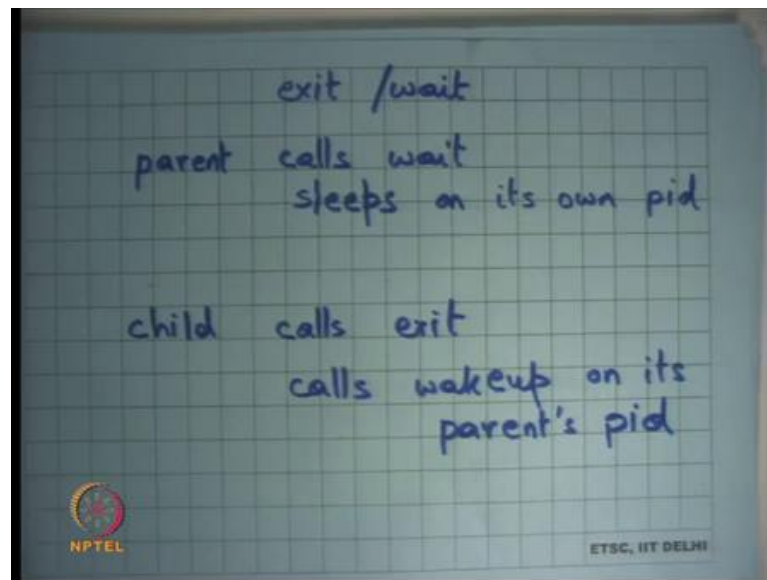 exit /wait
parent calls wait
sleeps on its own pid
child calls exit
calls wakeup on its
parent's pid
NPTEL
ETSC, IIT DELHI